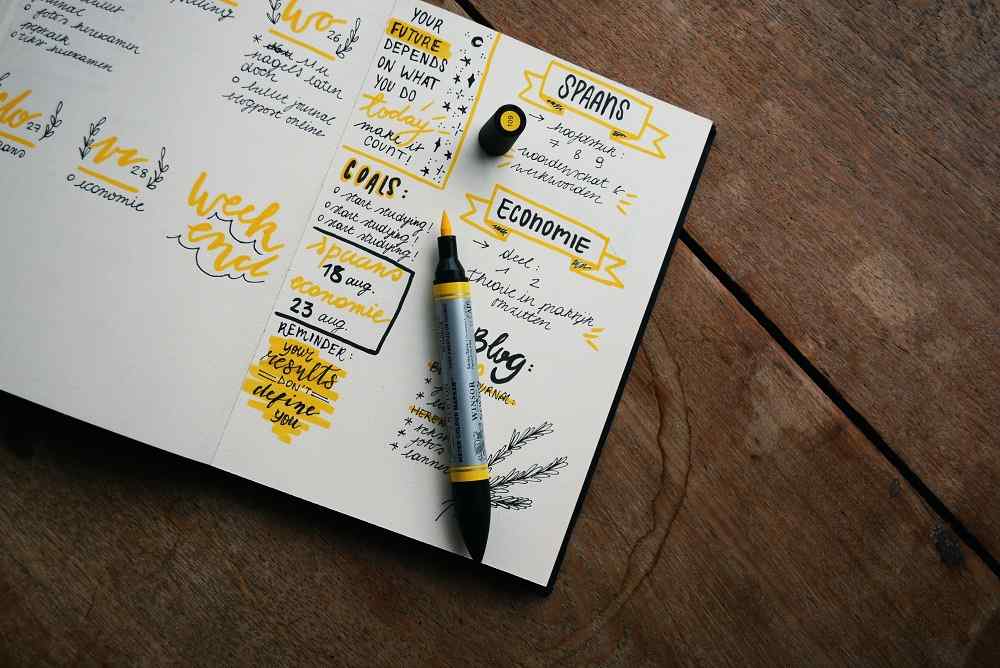 bullet journal
o foto's herexamen
o tekst herexamen
wo 26
* nagels laten
doch
o bullet journal
blogpost online
do 27
vr 28
o economie
week
end
YOUR
FUTURE
DEPENDS
ON WHAT
YOU DO
today
make it
COUNT!
GOALS:
o start studying!
o start studying!
o start studying!
spaans
18 aug.
economie
23 aug.
REMINDER:
your
results
DON'T
define
you
109
SPAANS
→ hoofdstuk:
7 8 9
woordenschat &
werkwoorden
ECONOMIE
→ deel:
1 2
theorie in praktijk
omzetten
Blog:
JOURNAL:
*
*
* foto's
* banner
WINSOR